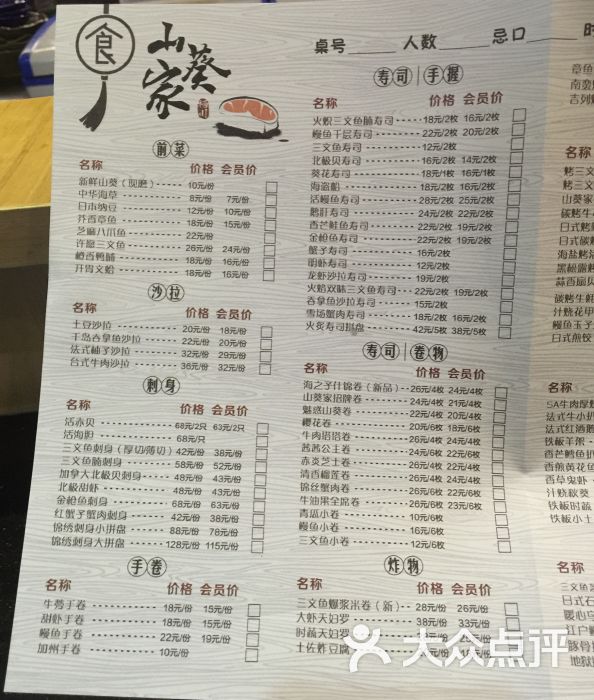 食
山葵家
桌号 人数 忌口
前菜
名称 价格 会员价
新鲜山葵（现磨） 10元/份
中华海草 8元/份 7元/份
日本纳豆 12元/份 10元/份
芥香章鱼 18元/份 15元/份
芝麻八爪鱼 22元/份
许愿三文鱼 26元/份 24元/份
橙香鸭脯 18元/份 16元/份
开胃文蛤 18元/份 16元/份
沙拉
名称 价格 会员价
土豆沙拉 20元/份 18元/份
千岛吞拿鱼沙拉 22元/份 20元/份
法式柚子沙拉 32元/份 29元/份
台式牛肉沙拉 36元/份 32元/份
刺身
名称 价格 会员价
活赤贝 68元/2只 63元/2只
活海胆 68元/只
三文鱼刺身（厚切/薄切） 42元/份 38元/份
三文鱼腩刺身 58元/份 52元/份
加拿大北极贝刺身 48元/份 43元/份
北极甜虾 48元/份 43元/份
金枪鱼刺身 68元/份 63元/份
红蟹子蟹肉刺身 42元/份 38元/份
锦绣刺身小拼盘 88元/份 78元/份
锦绣刺身大拼盘 128元/份 115元/份
手卷
名称 价格 会员价
牛蒡手卷 18元/份 15元/份
甜虾手卷 18元/份 15元/份
鳗鱼手卷 22元/份 19元/份
加州手卷 10元/份
寿司 手握
名称 价格 会员价
火炽三文鱼腩寿司 18元/2枚 16元/2枚
鳗鱼千层寿司 22元/2枚 20元/2枚
三文鱼寿司 12元/2枚
北极贝寿司 16元/2枚 14元/2枚
葵花寿司 18元/1枚 16元/1枚
海盗船 18元/2枚 16元/2枚
活鳗鱼寿司 28元/2枚 25元/2枚
鹅肝寿司 24元/2枚 22元/2枚
香芒鲑鱼寿司 22元/2枚 19元/2枚
金枪鱼寿司 22元/2枚 19元/2枚
蟹子寿司 16元/2枚
明虾寿司 12元/2枚
龙虾沙拉寿司 19元/2枚
火焰双味三文鱼寿司 22元/2枚 19元/2枚
吞拿鱼沙拉寿司 15元/2枚
雪场蟹肉寿司 18元/2枚 16元/2枚
火炙寿司拼盘 42元/5枚 38元/5枚
寿司 卷物
名称 价格 会员价
海之子什锦卷（新品） 26元/4枚 24元/4枚
山葵家招牌卷 24元/4枚 21元/4枚
魅惑山葵卷 22元/4枚 20元/4枚
樱花卷 20元/6枚 18元/6枚
牛肉铝箔卷 26元/4枚 24元/4枚
茜茜公主卷 24元/6枚 22元/6枚
赤炎芝士卷 26元/4枚 22元/4枚
清香榴莲卷 26元/4枚 24元/4枚
锦丝蟹肉卷 26元/6枚 22元/6枚
牛油果全席卷 26元/6枚 23元/6枚
青瓜小卷 10元/6枚
鳗鱼小卷 16元/6枚
三文鱼小卷 12元/6枚
炸物
名称 价格 会员价
三文鱼爆浆米卷（新） 28元/份 26元/份
大虾天妇罗 38元/份 33元/份
时蔬天妇罗
土佐炸豆腐
章鱼
吉列
名称
烤三文
烤三文
山葵家
碳烤牛
日式烤
日式碳
海盐烤
黑椒露
蒜香扇贝
碳烤生蚝
汁烧花甲
鳗鱼玉子
日式煎饺
名称
5A牛肉厚
法式牛小
法式红酒鹅
铁板羊架
香芒鳕鱼扒
香煎黄花鱼
香草鬼虾
汁烧秋葵
铁板时蔬
铁板小土
名称
三文鱼
日式石
暖心乌
江户
豚骨
地狱
大众点评